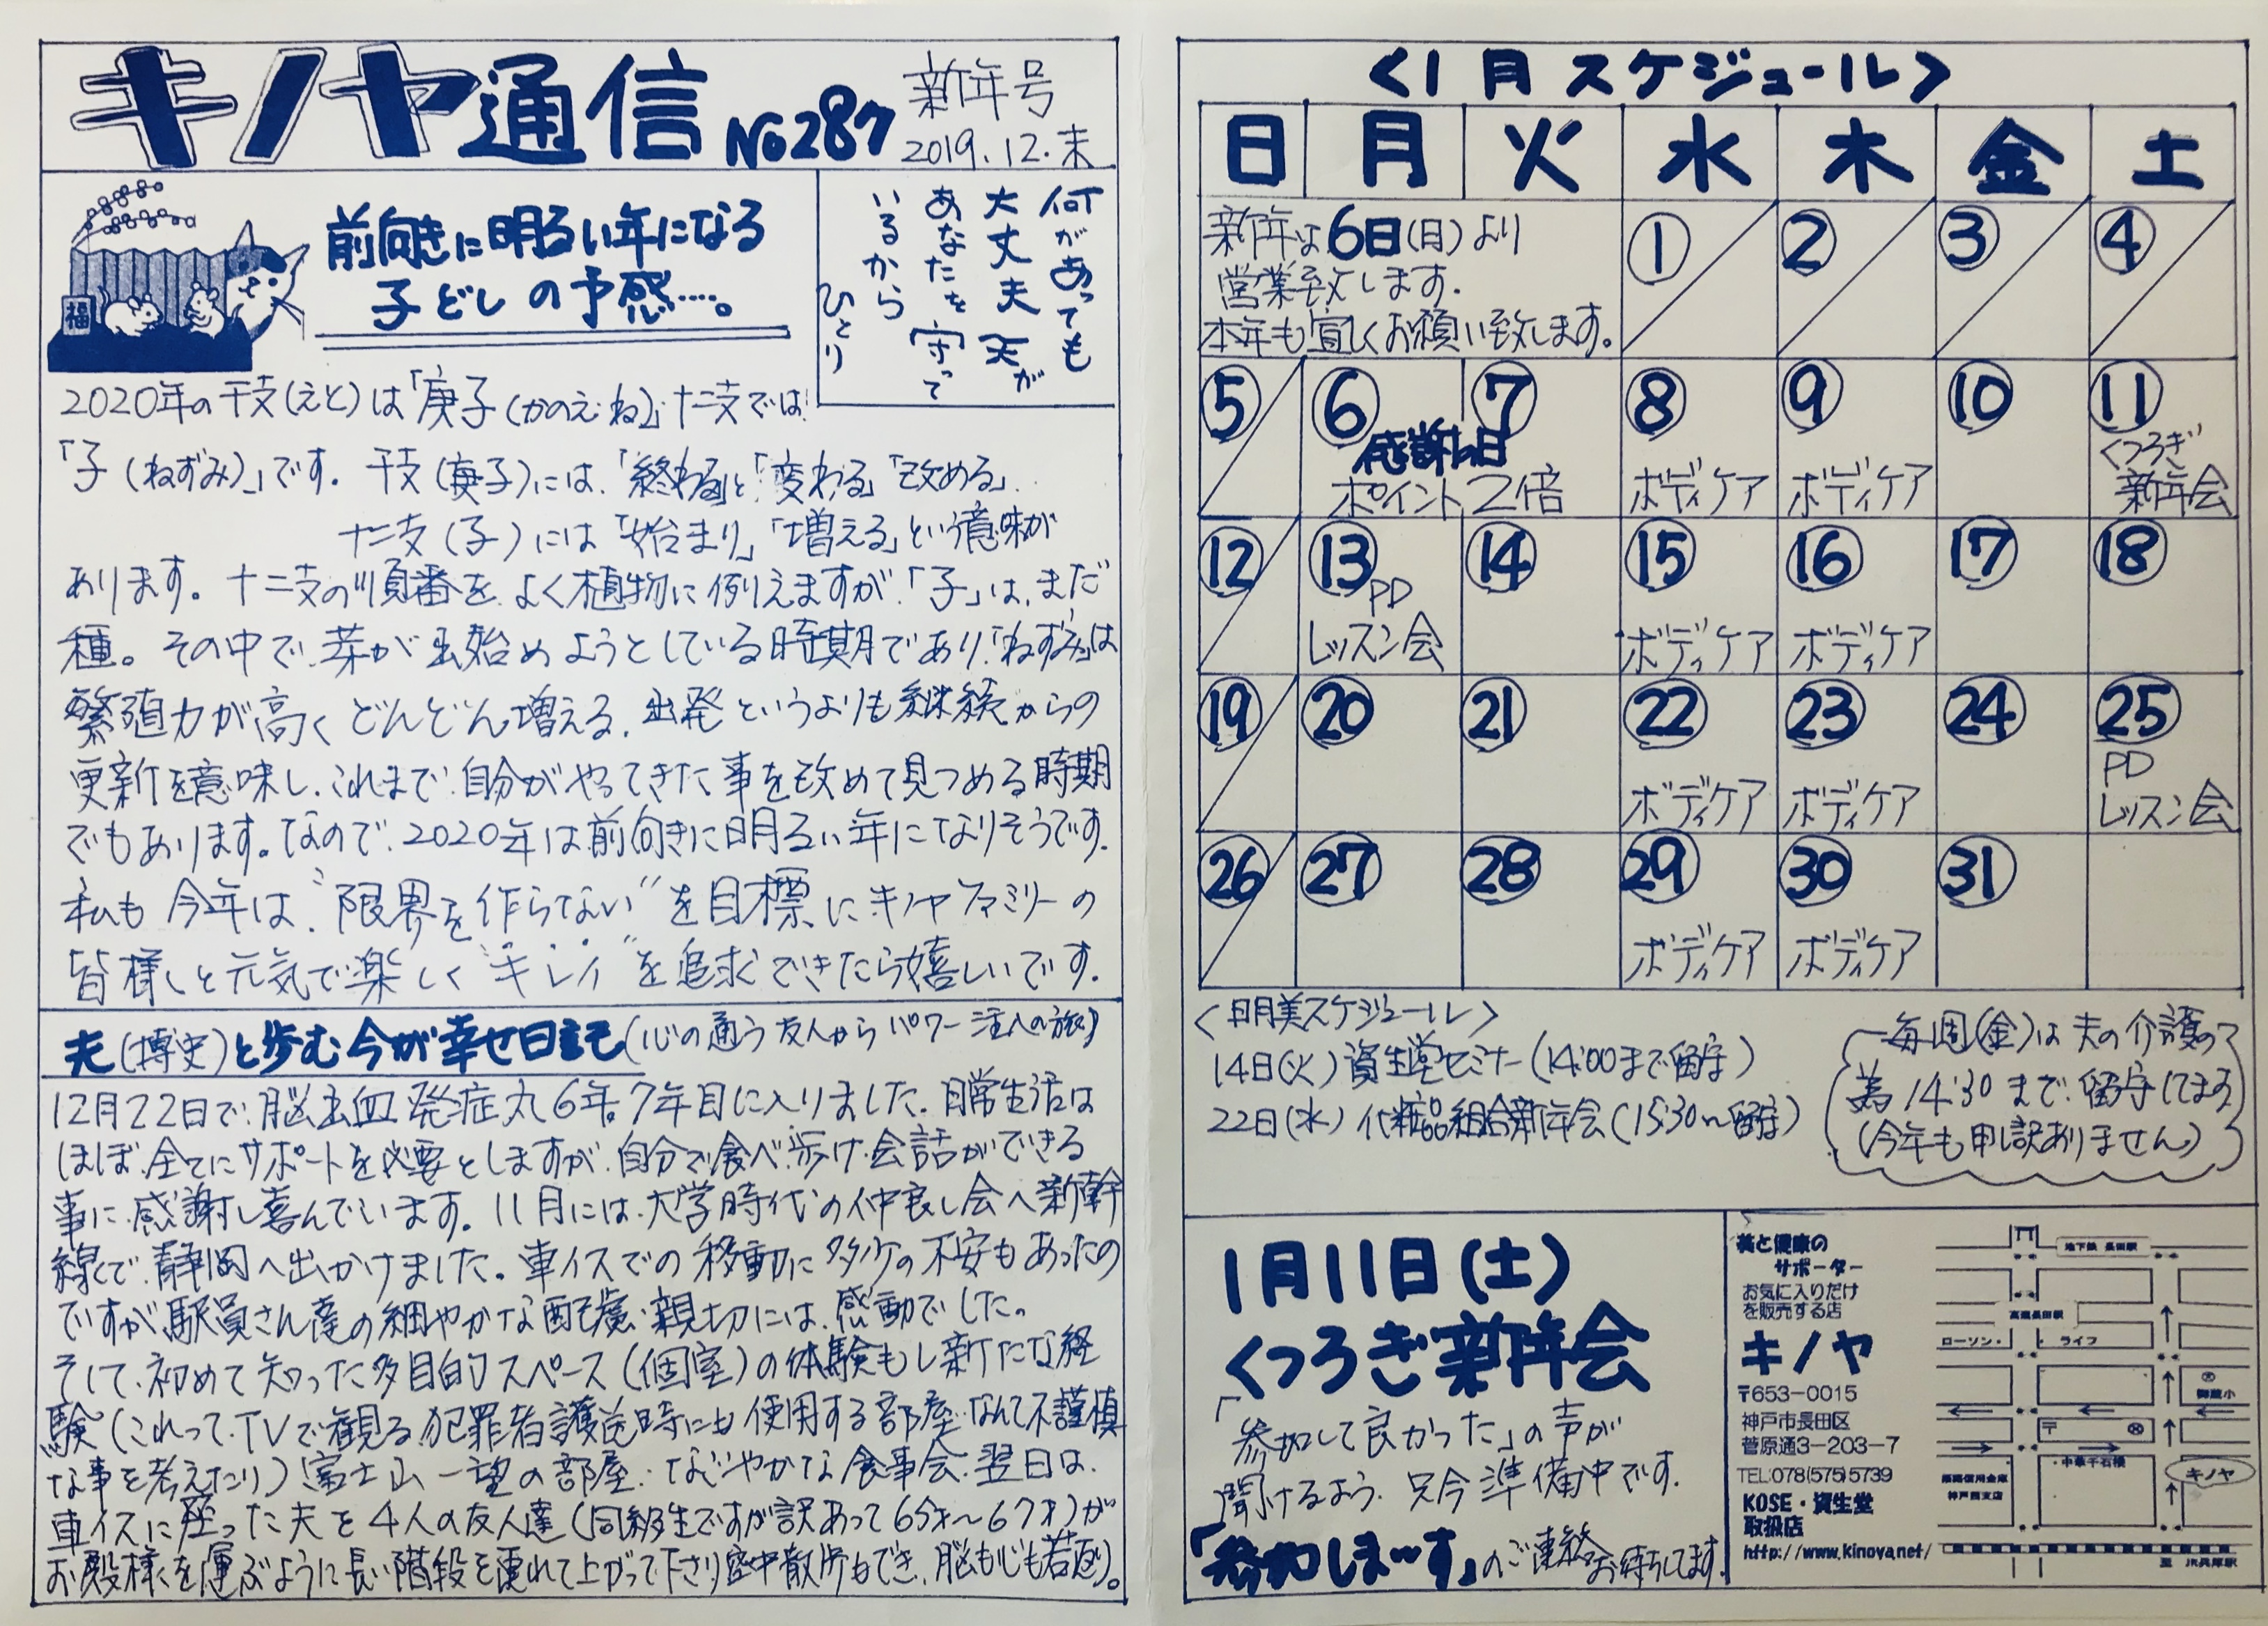 キノヤ通信 No287
新年号
2019.12.末
福
前向きに明るい年になる
子どしの予感……。
何があっても
大丈夫 天が
あなたを守って
いるから
ひとり
2020年の干支(えと)は「庚子(かのえ・ね)」十二支では
「子(ねずみ)」です。干支(庚子)には、「終わる」と「変わる」「改める」
十二支(子)には「始まり」「増える」という意味が
あります。十二支の順番を、よく植物に例えますが、「子」は、まだ
種。その中で、芽が出始めようとしている時期であり、「ねずみ」は
繁殖力が高くどんどん増える、出発というよりも継続からの
更新を意味し、これまで自分がやってきた事を改めて見つめる時期
でもあります。なので、2020年は前向きに明るい年になりそうです。
私も今年は、“限界を作らない”を目標にキノヤファミリーの
皆様と元気で楽しく“キレイ”を追求できたら嬉しいです。
夫(博史)と歩む今が幸せ日記(心の通う友人からパワー注入の旅)
12月22日で、脳出血発症丸6年。7年目に入りました。日常生活は
ほぼ全てにサポートを必要としますが、自分で食べ、歩け、会話ができる
事に、感謝し喜んでいます。11月には、大学時代の仲良し会へ新幹
線で、静岡へ出かけました。車イスでの移動に多少の不安もあったの
ですが、駅員さん達の細やかな配慮、親切には、感動でした。
そして、初めて知った多目的スペース(個室)の体験もし新たな経
験(これって、TVで観る犯罪者護送時にも使用する部屋、なんて不謹慎
な事を考えたり)富士山一望の部屋、なごやかな食事会、翌日は、
車イスに座った夫を4人の友人達(同級生ですが訳あって65才〜67才)が
お殿様を運ぶように長い階段を連れて上がって下さり空中散歩もでき、脳も心も若返り。
<1月スケジュール>
日 月 火 水 木 金 土
新年は6日(月)より
営業致します。
本年も宜しくお願い致します。
① ② ③ ④
⑤ ⑥ ⑦ ⑧ ⑨ ⑩ ⑪
感謝日
ポイント2倍
ボディケア ボディケア
くつろぎ
新年会
⑫ ⑬ ⑭ ⑮ ⑯ ⑰ ⑱
PD
レッスン会
ボディケア ボディケア
⑲ ⑳ ㉑ ㉒ ㉓ ㉔ ㉕
ボディケア ボディケア
PD
レッスン会
㉖ ㉗ ㉘ ㉙ ㉚ ㉛
ボディケア ボディケア
<明美スケジュール>
14日(火)資生堂セミナー(14:00まで留守)
22日(水)化粧品組合新年会(15:30〜留守)
毎週(金)は夫の介護の
為14:30まで、留守してます
(今年も申し訳ありません)
1月11日(土)
くつろぎ新年会
「参加して良かった」の声が
聞けるよう、只今準備中です。
「参加しま〜す」のご連絡お待ちしてます。
美と健康の
サポーター
お気に入りだけ
を販売する店
キノヤ
〒653-0015
神戸市長田区
菅原通3-203-7
TEL:078(575)5739
KOSE・資生堂
取扱店
http://www.kinoya.net/
地下鉄 長田駅
高速長田駅
ローソン・
ライフ
御蔵小
〒
・中華千石楼
キノヤ
姫路信用金庫
神戸西支店
至 JR兵庫駅